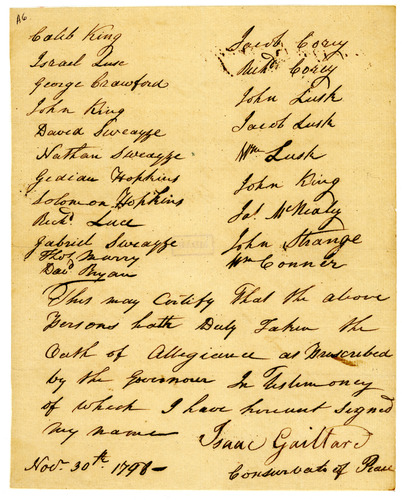 A6
Caleb King
Israel Luse
George Crawford
John King
David Sweayze
Nathan Sweayze
Gedian Hopkins
Solomon Hopkins
Richd. Luce
Gabriel Sweayze
Thos. Marry
Davd. Bryan
Jacob Corey
Richd. Corey
John Lusk
Jacob Lusk
Wm Lusk
John King
Jas. McNealy
John Strange
Wm Conner
This may Certify That the above
Persons hath Duly Taken the
Oath of Allegiance as Prescribed
by the Governour In Testimoney
of which I have hereunt Signed
my name Isaac Gaillard
Novr. 30th. 1798 - Conservato of Peace